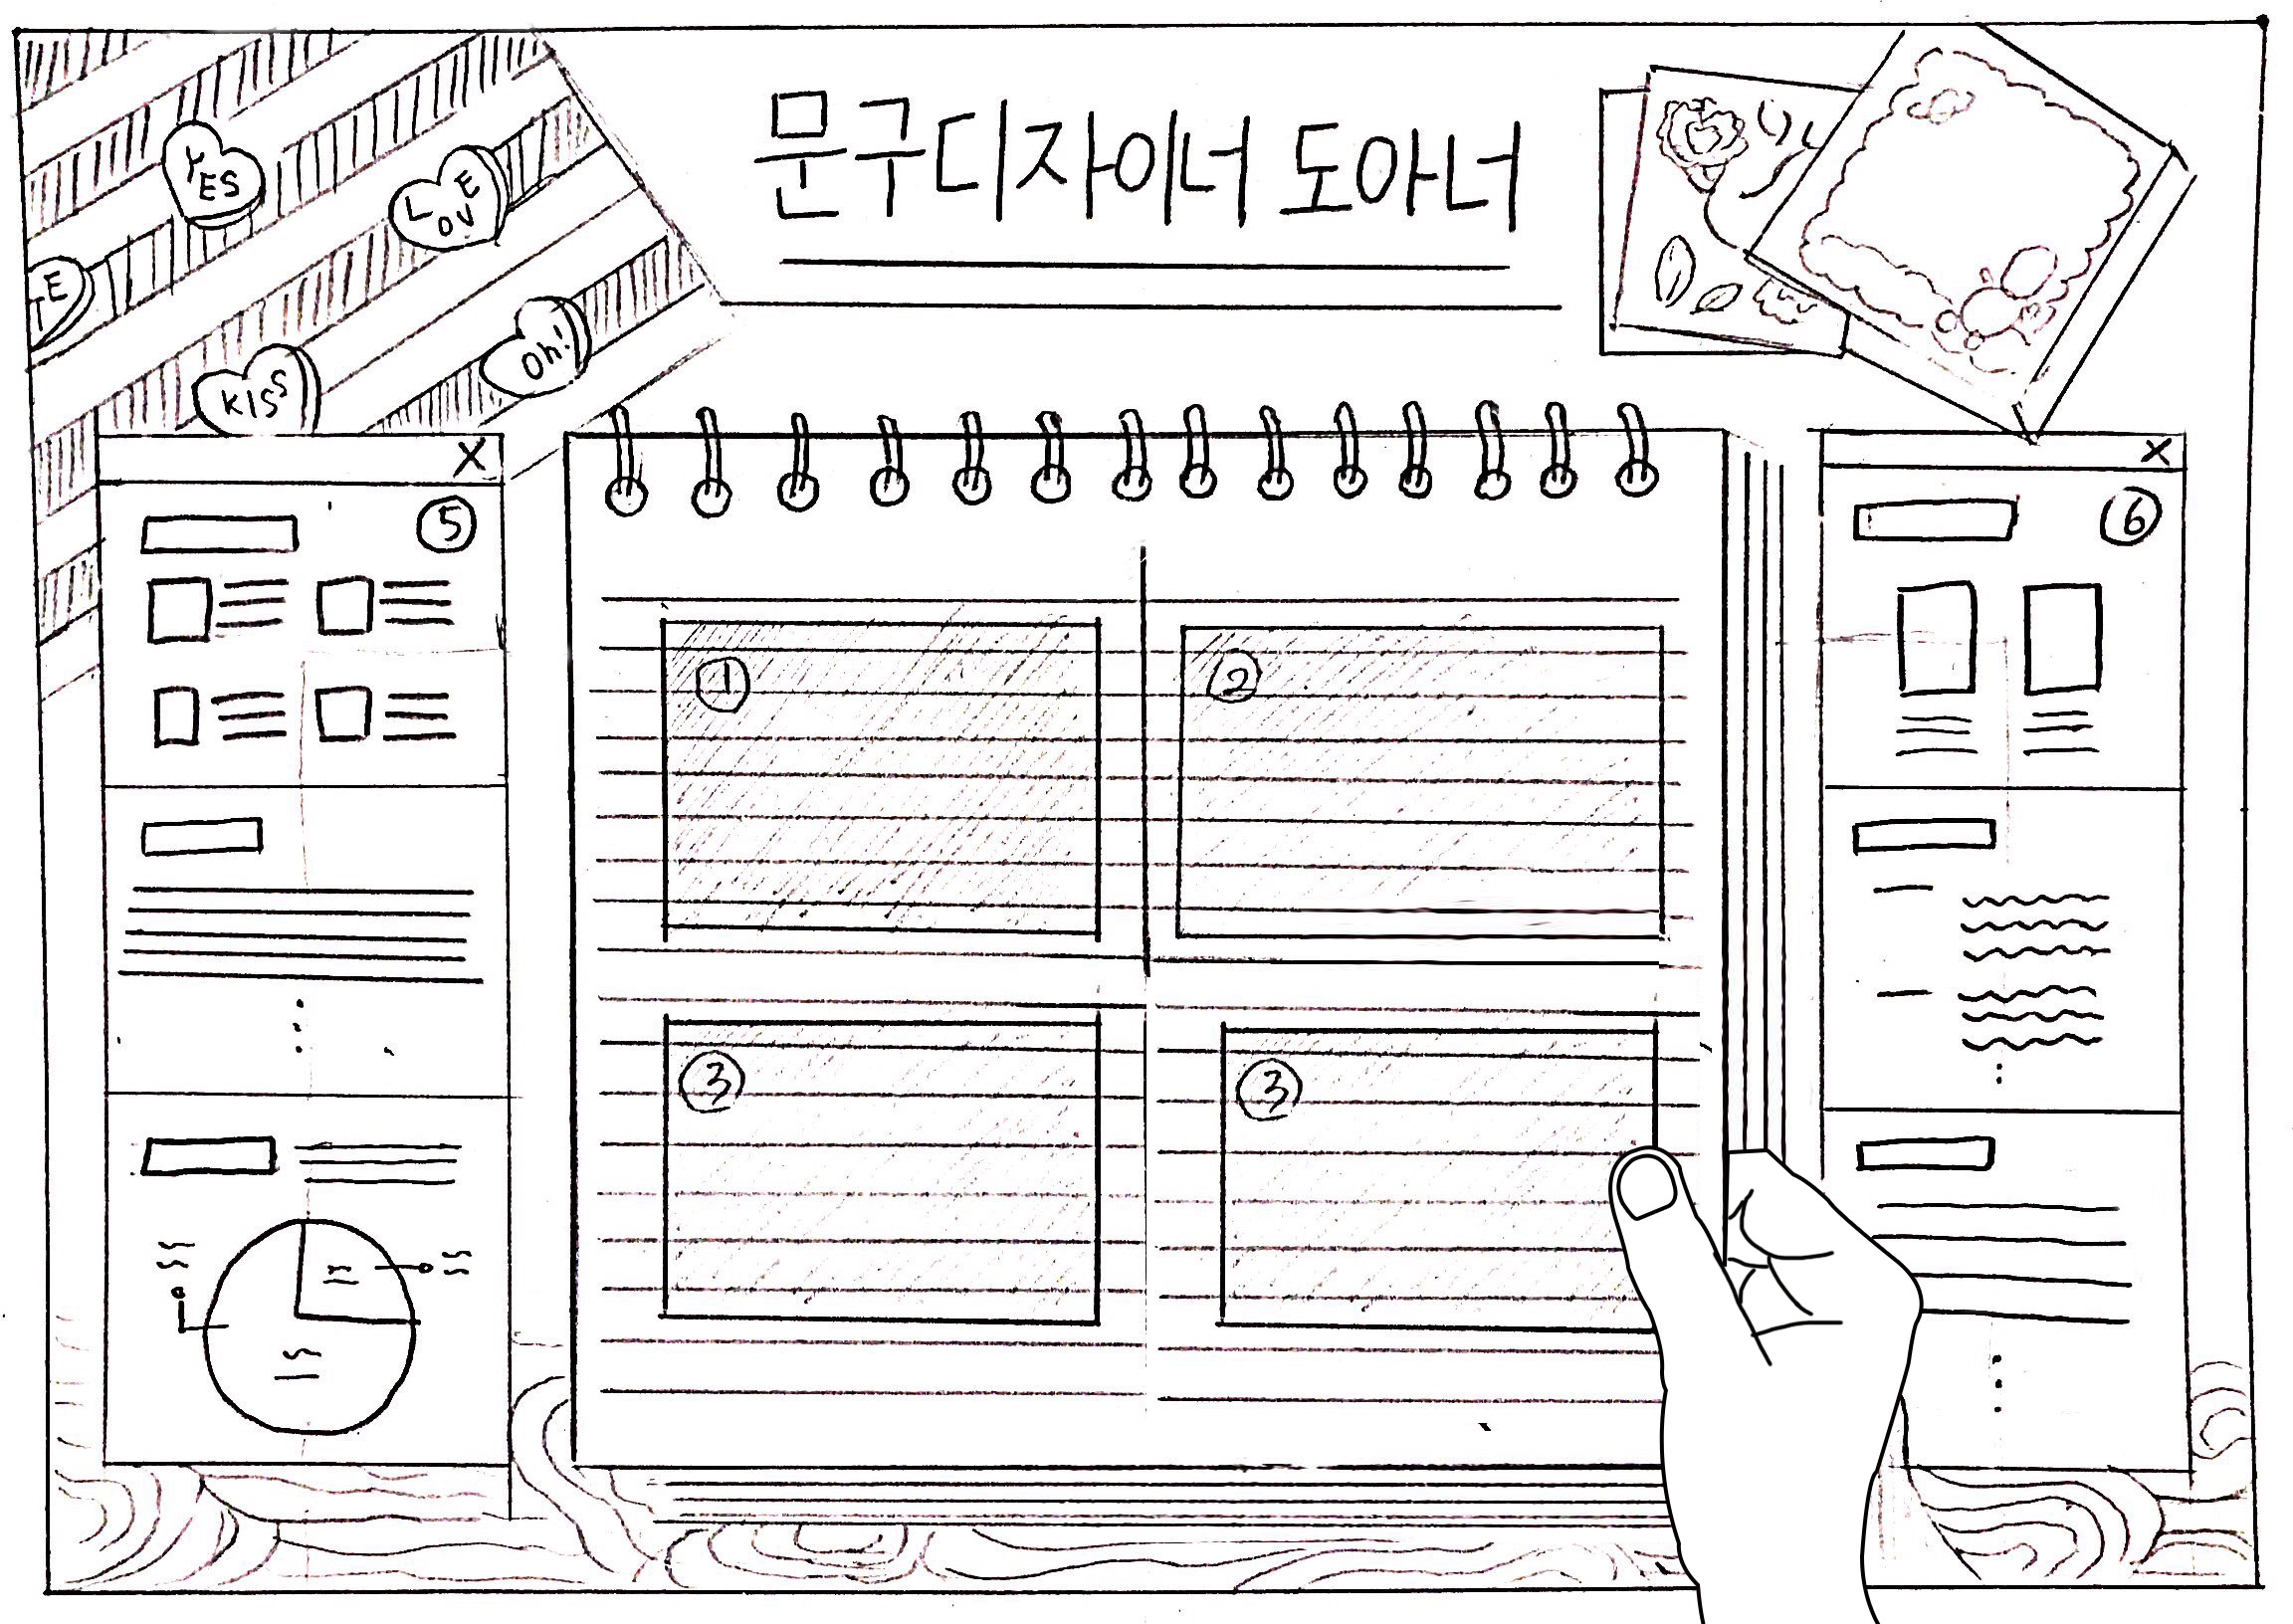 문구디자이너 도아너
YES
LOVE
TE
KISS
Oh!
X
X
⑤
⑥
①
②
③
③